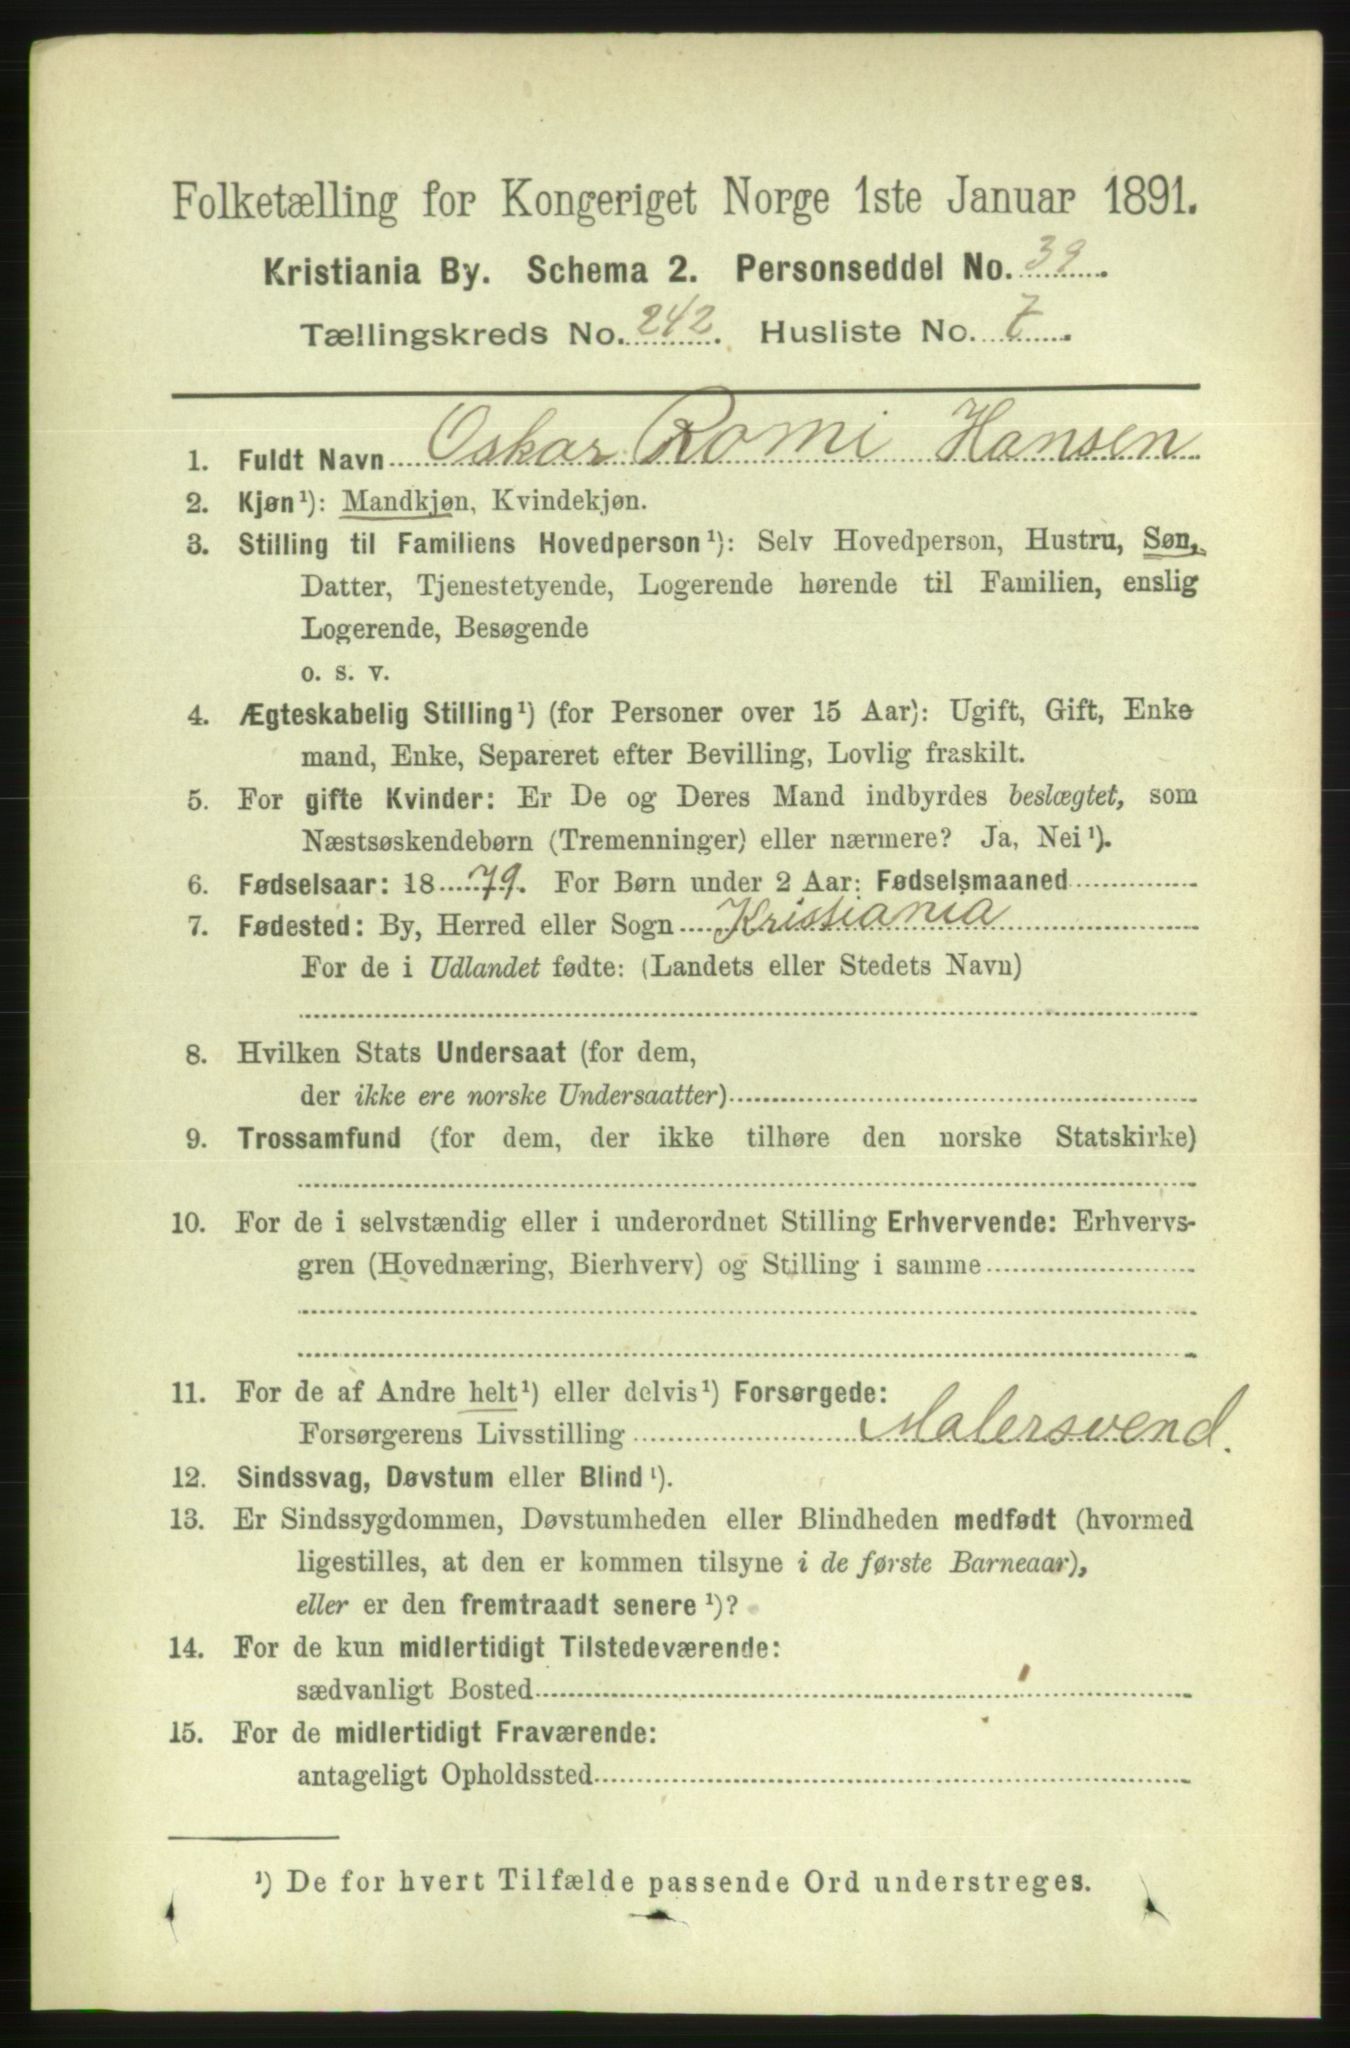 Folketælling for Kongeriget Norge 1ste Januar 1891.
Kristiania By. Schema 2. Personseddel No. 39.
Tællingskreds No. 242. Husliste No. 7.
1. Fuldt Navn Oskar Romi Hansen
2. Kjøn¹): Mandkjøn, Kvindekjøn.
3. Stilling til Familiens Hovedperson¹): Selv Hovedperson, Hustru, Søn,
Datter, Tjenestetyende, Logerende hørende til Familien, enslig
Logerende, Besøgende
o. s. v.
4. Ægteskabelig Stilling¹) (for Personer over 15 Aar): Ugift, Gift, Enke
mand, Enke, Separeret efter Bevilling, Lovlig fraskilt.
5. For gifte Kvinder: Er De og Deres Mand indbyrdes beslægtet, som
Næstsøskendebørn (Tremenninger) eller nærmere? Ja, Nei¹).
6. Fødselsaar: 1879. For Børn under 2 Aar: Fødselsmaaned
7. Fødested: By, Herred eller Sogn Kristiania
For de i Udlandet fødte: (Landets eller Stedets Navn)
8. Hvilken Stats Undersaat (for dem,
der ikke ere norske Undersaatter)
9. Trossamfund (for dem, der ikke tilhøre den norske Statskirke)
10. For de i selvstændig eller i underordnet Stilling Erhvervende: Erhvervs-
gren (Hovednæring, Bierhverv) og Stilling i samme
11. For de af Andre helt¹) eller delvis¹) Forsørgede:
Forsørgerens Livsstilling Malersvend.
12. Sindssvag, Døvstum eller Blind¹).
13. Er Sindssygdommen, Døvstumheden eller Blindheden medfødt (hvormed
ligestilles, at den er kommen tilsyne i de første Barneaar),
eller er den fremtraadt senere¹)?
14. For de kun midlertidigt Tilstedeværende:
sædvanligt Bosted
15. For de midlertidigt Fraværende:
antageligt Opholdssted
¹) De for hvert Tilfælde passende Ord understreges.